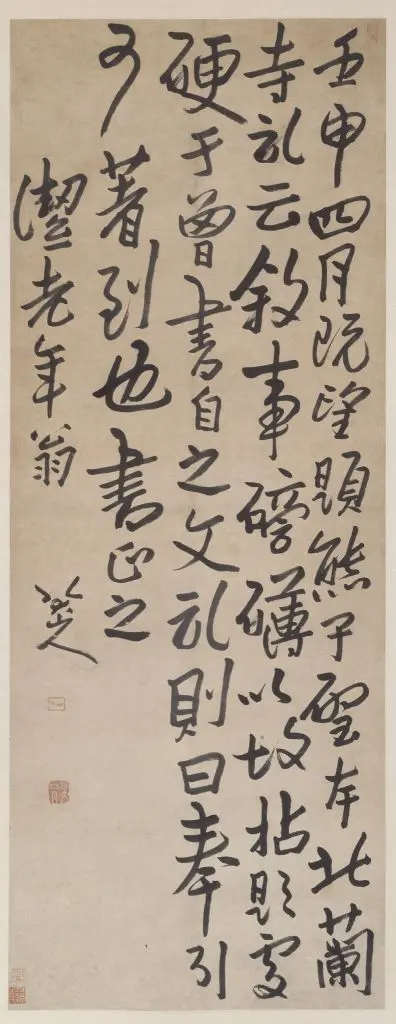 壬申四月既望題熊子聖本北蘭
寺記云敘事磅礴以故拈題處
硬于曾書自之文記則曰奉引
可著到也書正之
潔老年翁
八大山人